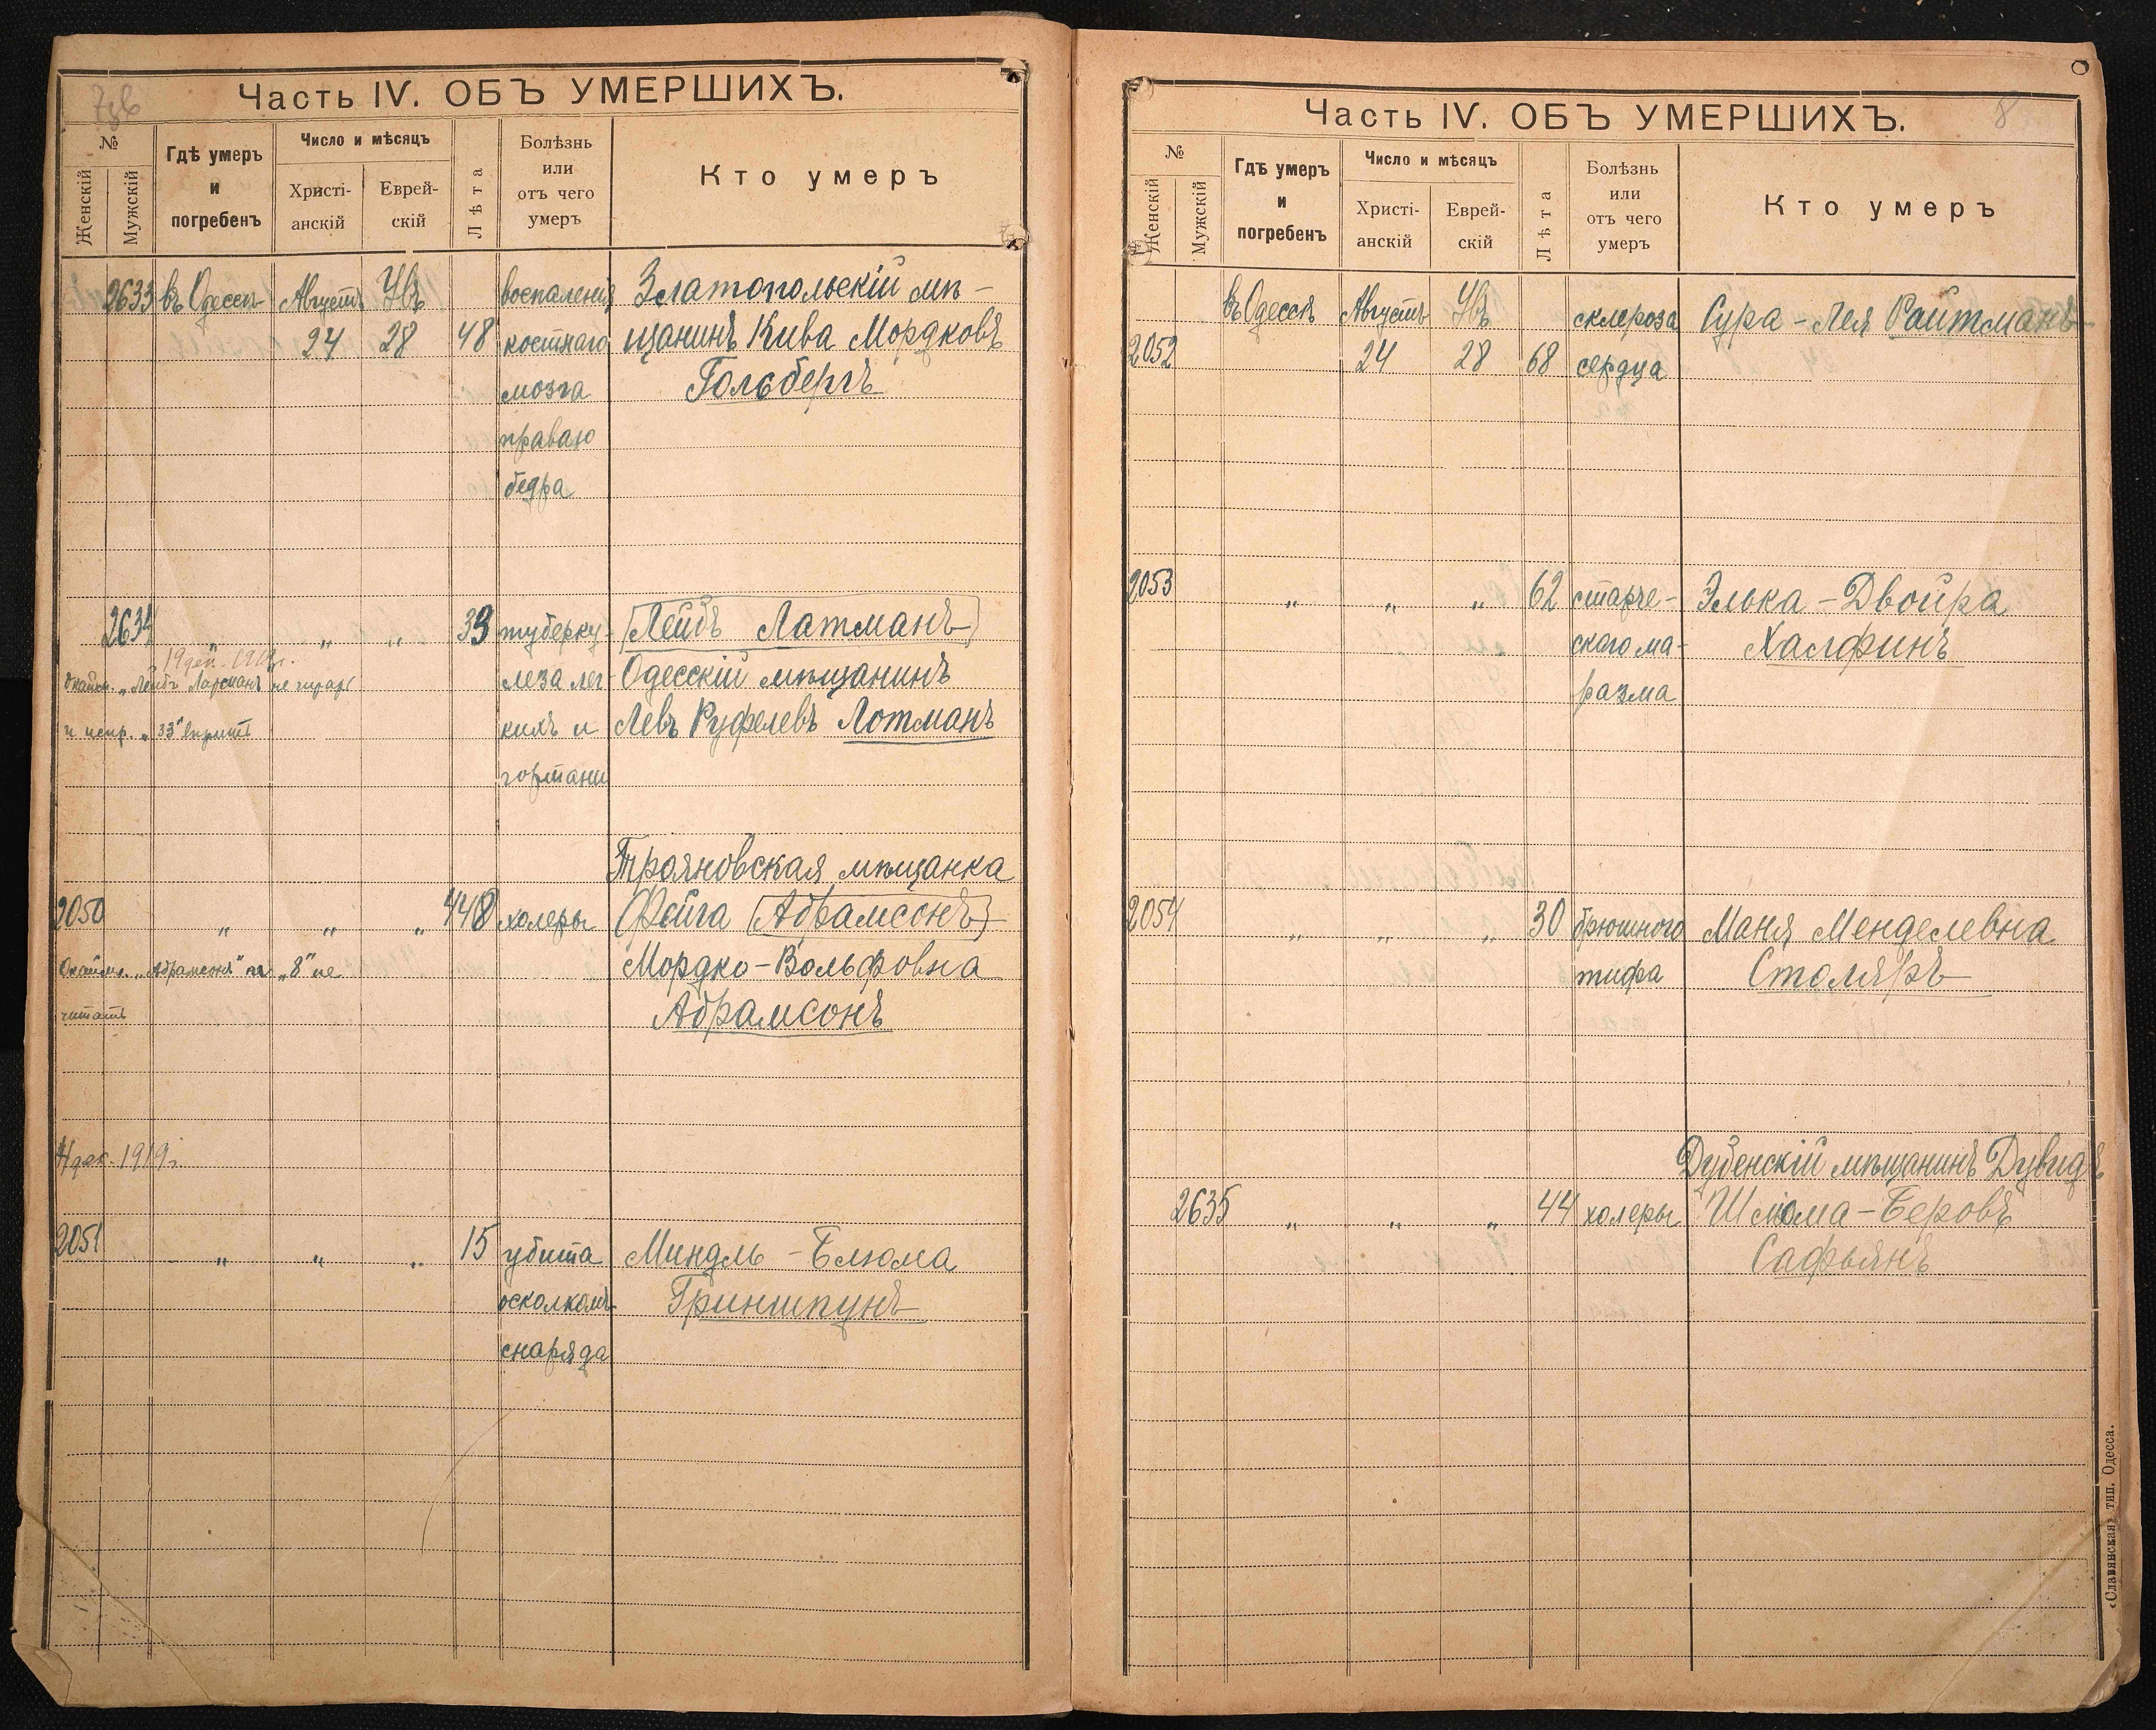 Часть IV. ОБЪ УМЕРШИХЪ.
№
Женскій
Мужскій
Гдѣ умеръ
и
погребенъ
Число и мѣсяцъ
Христі-
анскій
Еврей-
скій
Лѣта
Болѣзнь
или
отъ чего
умеръ
Кто умеръ
2633 въ Одессѣ Августъ воспаленія Златопольскій мѣ-
24 28 48 костнаго щанинъ Кива Мордковъ
мозга Гольбергъ
праваго
бедра
2634 " " " 33 туберку- Лейбъ Латманъ
19 дек. 1919г.
леза лег- Одесскій мѣщанинъ
и испр. „33" вѣрить
кихъ и Левъ Руфелевъ Лотманъ
гортани
Трояновская мѣщанка
2050 " " " 48 холеры Фейга Абрамсонъ
„Абрамсонъ" „8" не Мордко-Вольфовна
читать Абрамсонъ
дек. 1919г.
2051 " " " 15 убита Миндль-Блюма
осколкомъ Гриншпунъ
снаряда
Часть IV. ОБЪ УМЕРШИХЪ.
8
№
Женскій
Мужскій
Гдѣ умеръ
и
погребенъ
Число и мѣсяцъ
Христі-
анскій
Еврей-
скій
Лѣта
Болѣзнь
или
отъ чего
умеръ
Кто умеръ
въ Одессѣ Августъ склероза Сура-Лея Ройтманъ
2052 24 28 68 сердца
2053 " " " 62 старче- Элька-Двойра
скаго ма- Халфинъ
разма
2054 " " " 30 брюшного Маня Менделевна
тифа Столяръ
Дубенскій мѣщанинъ Дувидъ
2635 " " " 44 холеры Шлома-Беровъ
Сафьянъ
«Славянская» тип. Одесса.